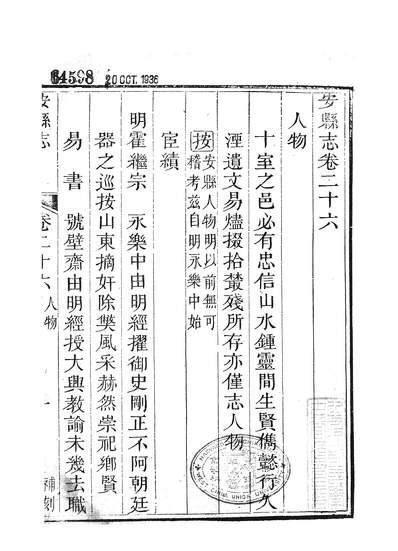 64598
20 OCT. 1936
安縣志卷二十六
人物
十室之邑必有忠信山水鍾靈間生賢儁懿行久
湮遺文易燼掇拾叢殘所存亦僅志人物
按安縣人物明以前無可
稽考茲自明永樂中始
宦績
明霍繼宗 永樂中由明經擢御史剛正不阿朝廷
器之巡按山東摘奸除獘風采赫然崇祀鄉賢
易書 號壁齋由明經授大興教諭未幾去職
安縣志 卷二十六 人物 一 補刻
WEST CHINA UNION UNIVERSITY